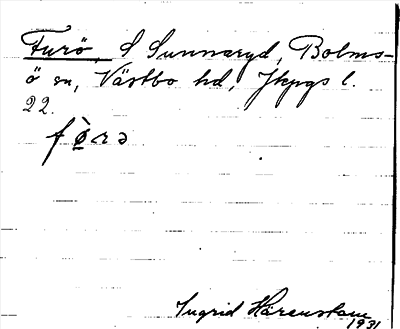 Furö, S Sunnaryd, Bolms-
ö sn, Västbo hd, Jkpgs l.
22.
fø̀rə
Ingrid Härenstam
1931